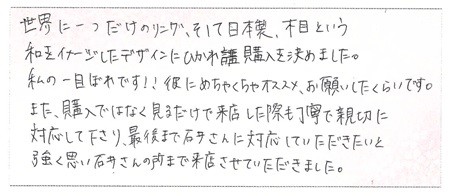 世界に一つだけのリング、そして日本製、木目という
和をイメージしたデザインにひかれ購入を決めました。
私の一目ぼれです!!彼にめちゃくちゃオススメ、お願いしたくらいです。
また、購入ではなく見るだけで来店した際も丁寧で親切に
対応して下さり、最後まで石井さんに対応していただきたいと
強く思い石井さんの所まで来店させていただきました。